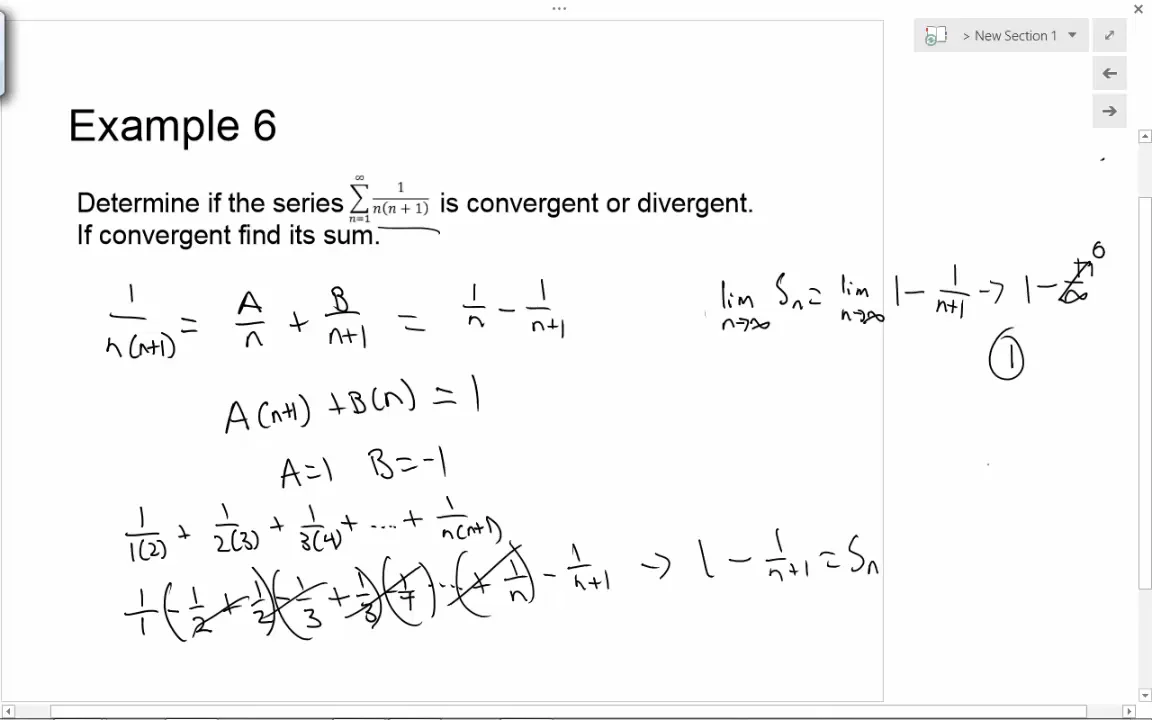 > New Section 1
Example 6
Determine if the series ∑_{n=1}^{∞} 1/(n(n + 1)) is convergent or divergent.
If convergent find its sum.
1/(n(n+1)) = A/n + B/(n+1) = 1/n - 1/(n+1)
A(n+1) + B(n) = 1
A=1 B=-1
1/1(2) + 1/2(3) + 1/3(4) + ... + 1/n(n+1)
1/1 (- 1/2 + 1/2)(- 1/3 + 1/3)( 1/7 ) ... ( + 1/n) - 1/(n+1) → 1 - 1/(n+1) = Sn
lim n→∞ Sn = lim n→∞ 1 - 1/(n+1) → 1 - 1/∞ 0
1